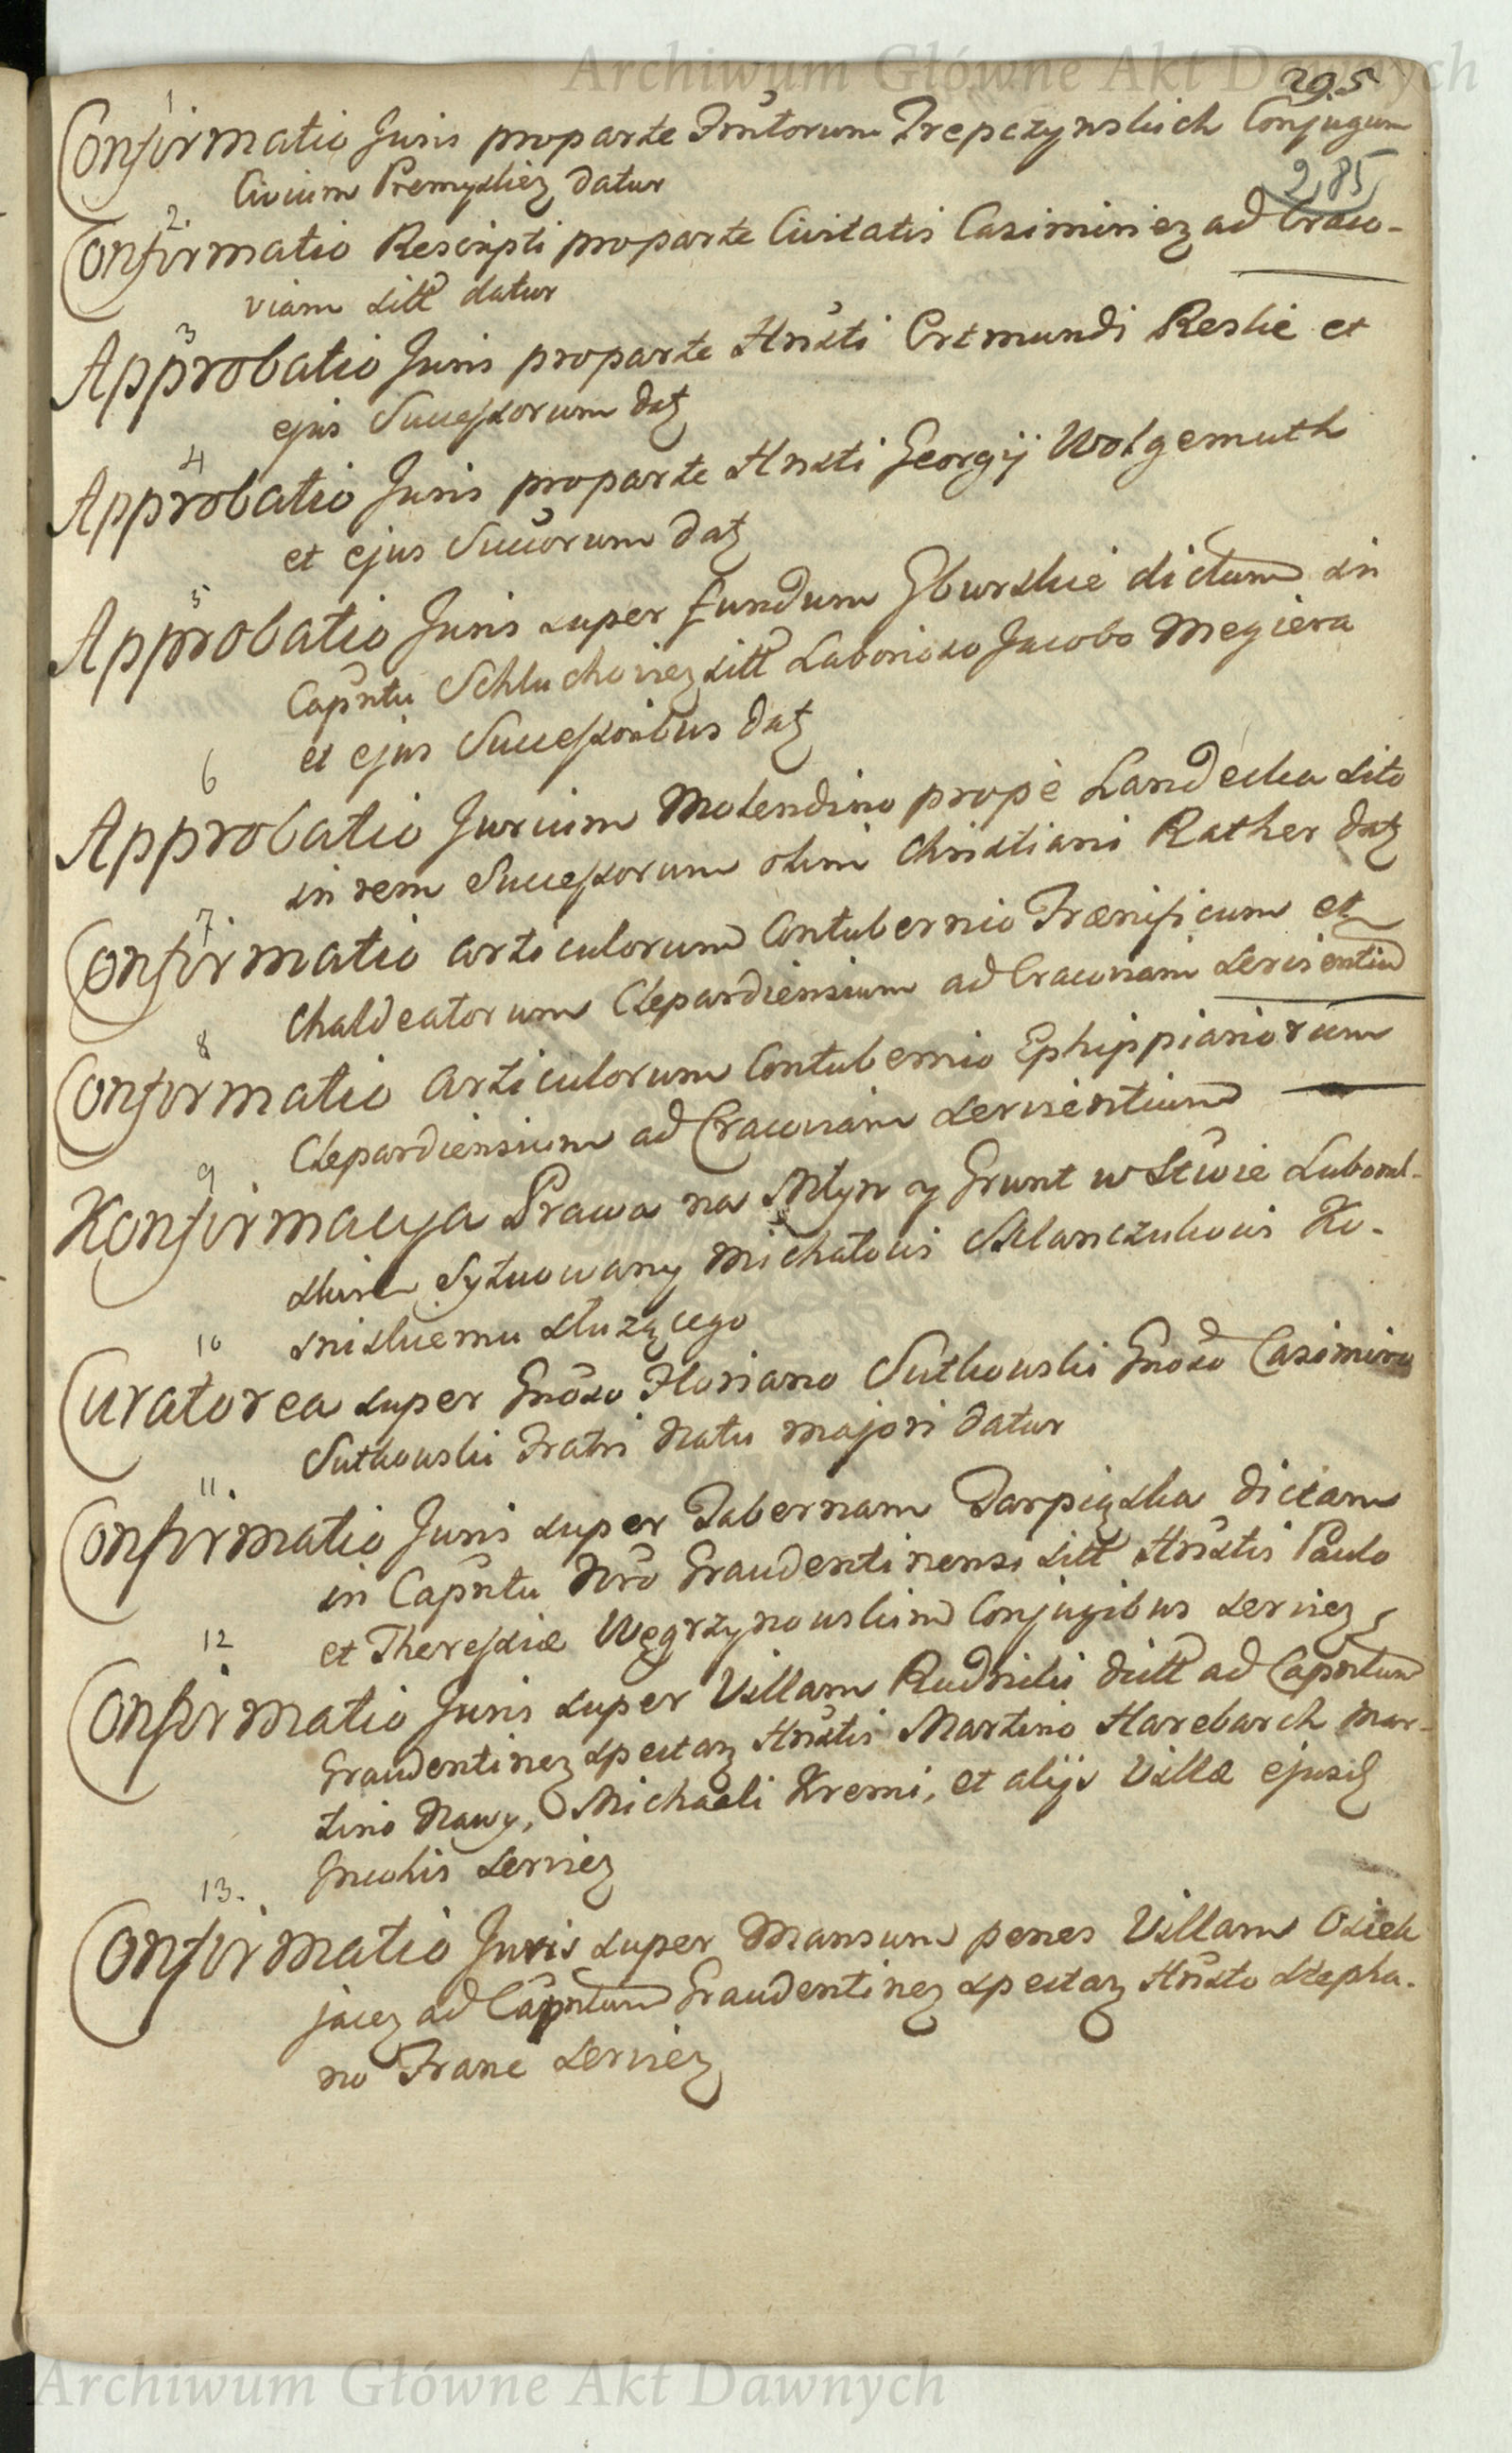 Archiwum Główne Akt Dawnych
295
1
Confirmatio Juris proparte Fmtorum Trepczynskich Conjugum
285
Civium Premysliez datur
2.
Confirmatio Rescripti proparte Civitatis Casimiriez ad Craco-
viam sitt datur
3
Approbatio Juris proparte Hnsti Ertmundi Reslie et
ejus Successorum datz
4
Approbatio Juris proparte Hnsti Georgij Wolgemuth
et ejus Succorum datz
5
Approbatio Juris super fundum Gburskie dictum in
Capntu Schluchoviez sitt Laborioso Jacobo Megiera
et ejus Successoribus datz
6
Approbatio Jurium Molendino propè Landecka sito
in rem Successorum olim Christiani Rather datz
7
Confirmatio articulorum Contubernio Frænificum et
Chaldeatorum Clepardiensium ad Cracoviam servientium
8
Confirmatio Articulorum Contubernio Ephippiariorum
Clepardiensium ad Cracoviam servientium
9
Konfirmacya Prawa na Młyn y Grunt w Stwie Luboml-
skim Sytuowany Michałowi Sklanczukowi Ko-
sniskiemu służącego
10
Curatorea super Gnoso Floriano Sutkowski Gnoso Casimiro
Sutkowski Fratri Natu majori datur
11.
Confirmatio Juris super Tabernam Tarpiązka dictam
in Capntu Nro Graudentinensi sitt Hnstis Paulo
et Theressiæ Węgrzynowskim Conjugibus serviez
12
Confirmatio Juris super Villam Rudniki dictt ad Capntum
Graudentinez spectaz Hnstis Martino Harebarch Mar-
tino Nawy, Michaeli Kremi, et alijs Villæ ejusdz
Incolis serviez
13.
Confirmatio Juris super Mansum penes Villam Osiek
jacez ad Capntum Graudentinez spectaz Hnsto Stepha-
no Frane serviez
Archiwum Główne Akt Dawnych